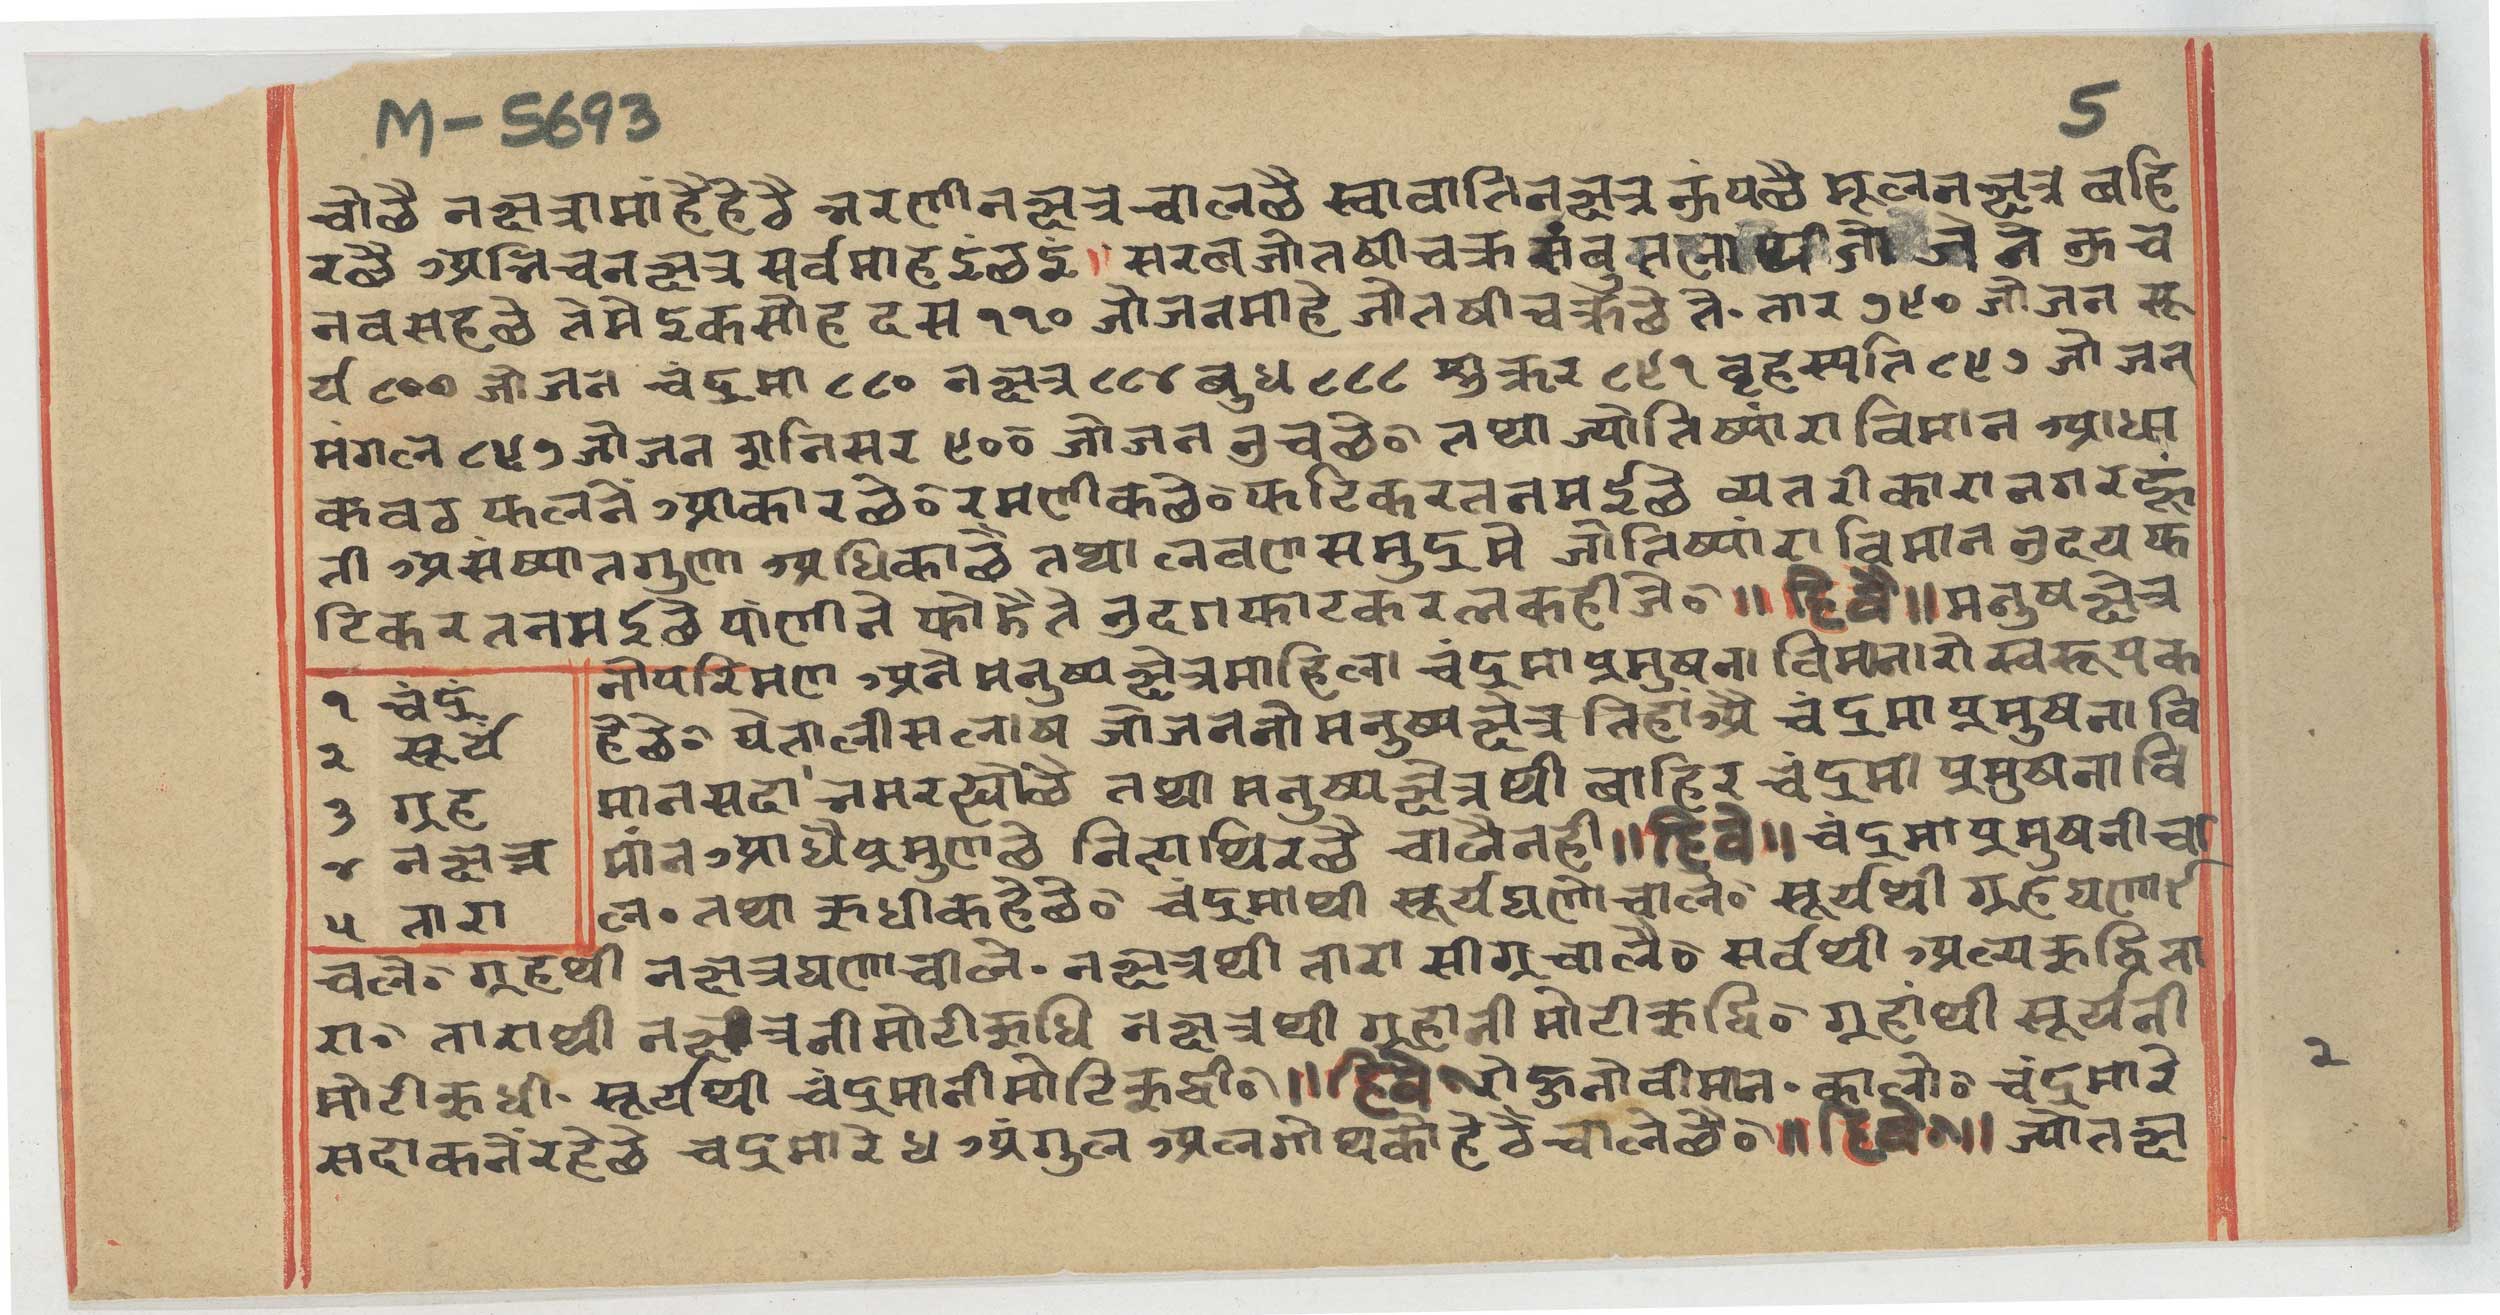 M-5693
5
चोछै नक्षत्रामांहैहेठै भरणीनक्षत्र चालछै स्वावातिनक्षत्र ऊंपछै मूलनक्षत्र बहि
रछै अभिचनक्षत्र सर्वमाहइंछइं॥ सरबजोतषीचक्र ऊच
नवसहछे तेमे इकसोह दस ११० जोजनमांहे जोतषीचक्रछे ते॰ तार ७९० जोजन सू
र्य ८०० जोजन चंद्रमा ८८० नक्षत्र ८८४ बुध ८८८ शुक्रर ८९१ बृहस्पति ८९७ जोजन
मंगल ८९७ जोजन शनिसर ९०० जोजन उचछे॰ तथा ज्योतिष्यांरा विमान आधा
कवठ फलनें आकारछे॰ रमणीकछे॰ फटिकरतनमईछे व्यतरीकारा नगर
ती असंष्यातगुणा अधिकाछै तथा लवणसमुद्रमे जोतिष्यांरा विमान उदयफ
टिकरतनमईछे पांणीने फोडैते उदगफाटकरत्नकहीजे॰ ॥हिवै॥ मनुषक्षेत्र
नोपरिमण अने मनुष्यक्षेत्रमाहिला चंद्रमाप्रमुषना विमानारो स्वरूपक
१ चंद्र
२ सूर्य
३ ग्रह
४ नक्षत्र
५ तारा
हैछे॰ पेतालीसलाष जोजननो मनुष्यक्षेत्र तिहांअै चंद्रमाप्रमुषना वि
मानसदा भमरह्योछै तथा मनुष्यक्षेत्रथी बाहिर चंद्रमा प्रमुषना वि
मांन आधैप्रमुणेछे थिरछै चालैनही॥हिवै॥ चंद्रमाप्रमुषनीचा
ल॰ तथा ऋधीकहैछे॰ चंद्रमाथी सूर्यघणोचाले॰ सूर्यथी ग्रहघणो
चले॰ ग्रहथी नक्षत्रघणोचाले॰ नक्षत्रथी तारा सीग्रचाले॰ सर्वथी अल्पऋद्धिता
रा॰ ताराथी नक्षत्रनीमोटीऋधि नक्षत्रथी ग्रहानी मोटीऋधि॰ ग्रहांथी सूर्यनी
मोटीऋधी॰ सूर्यथी चंद्रमानीमोटिऋधी॰॥हिवै॰ राहुनोवीमान॰ कालो॰ चंद्रमारे
सदाकनेंरहेछे चद्रमारे ४ अंगुल अलगोथकोहेठेचालेछै॰॥हिवै॰॥ ज्योतक्ष
२